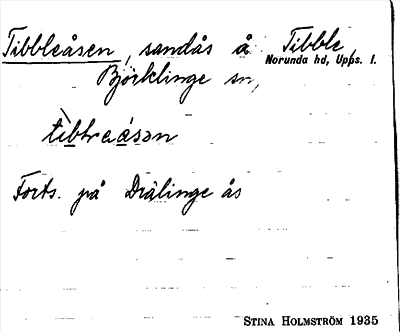 Tibbleåsen, sandås å Tibble,
Björklinge sn, Norunda hd, Upps. l.
tìbbreásən
Forts. på Drälinge ås
STINA HOLMSTRÖM 1935